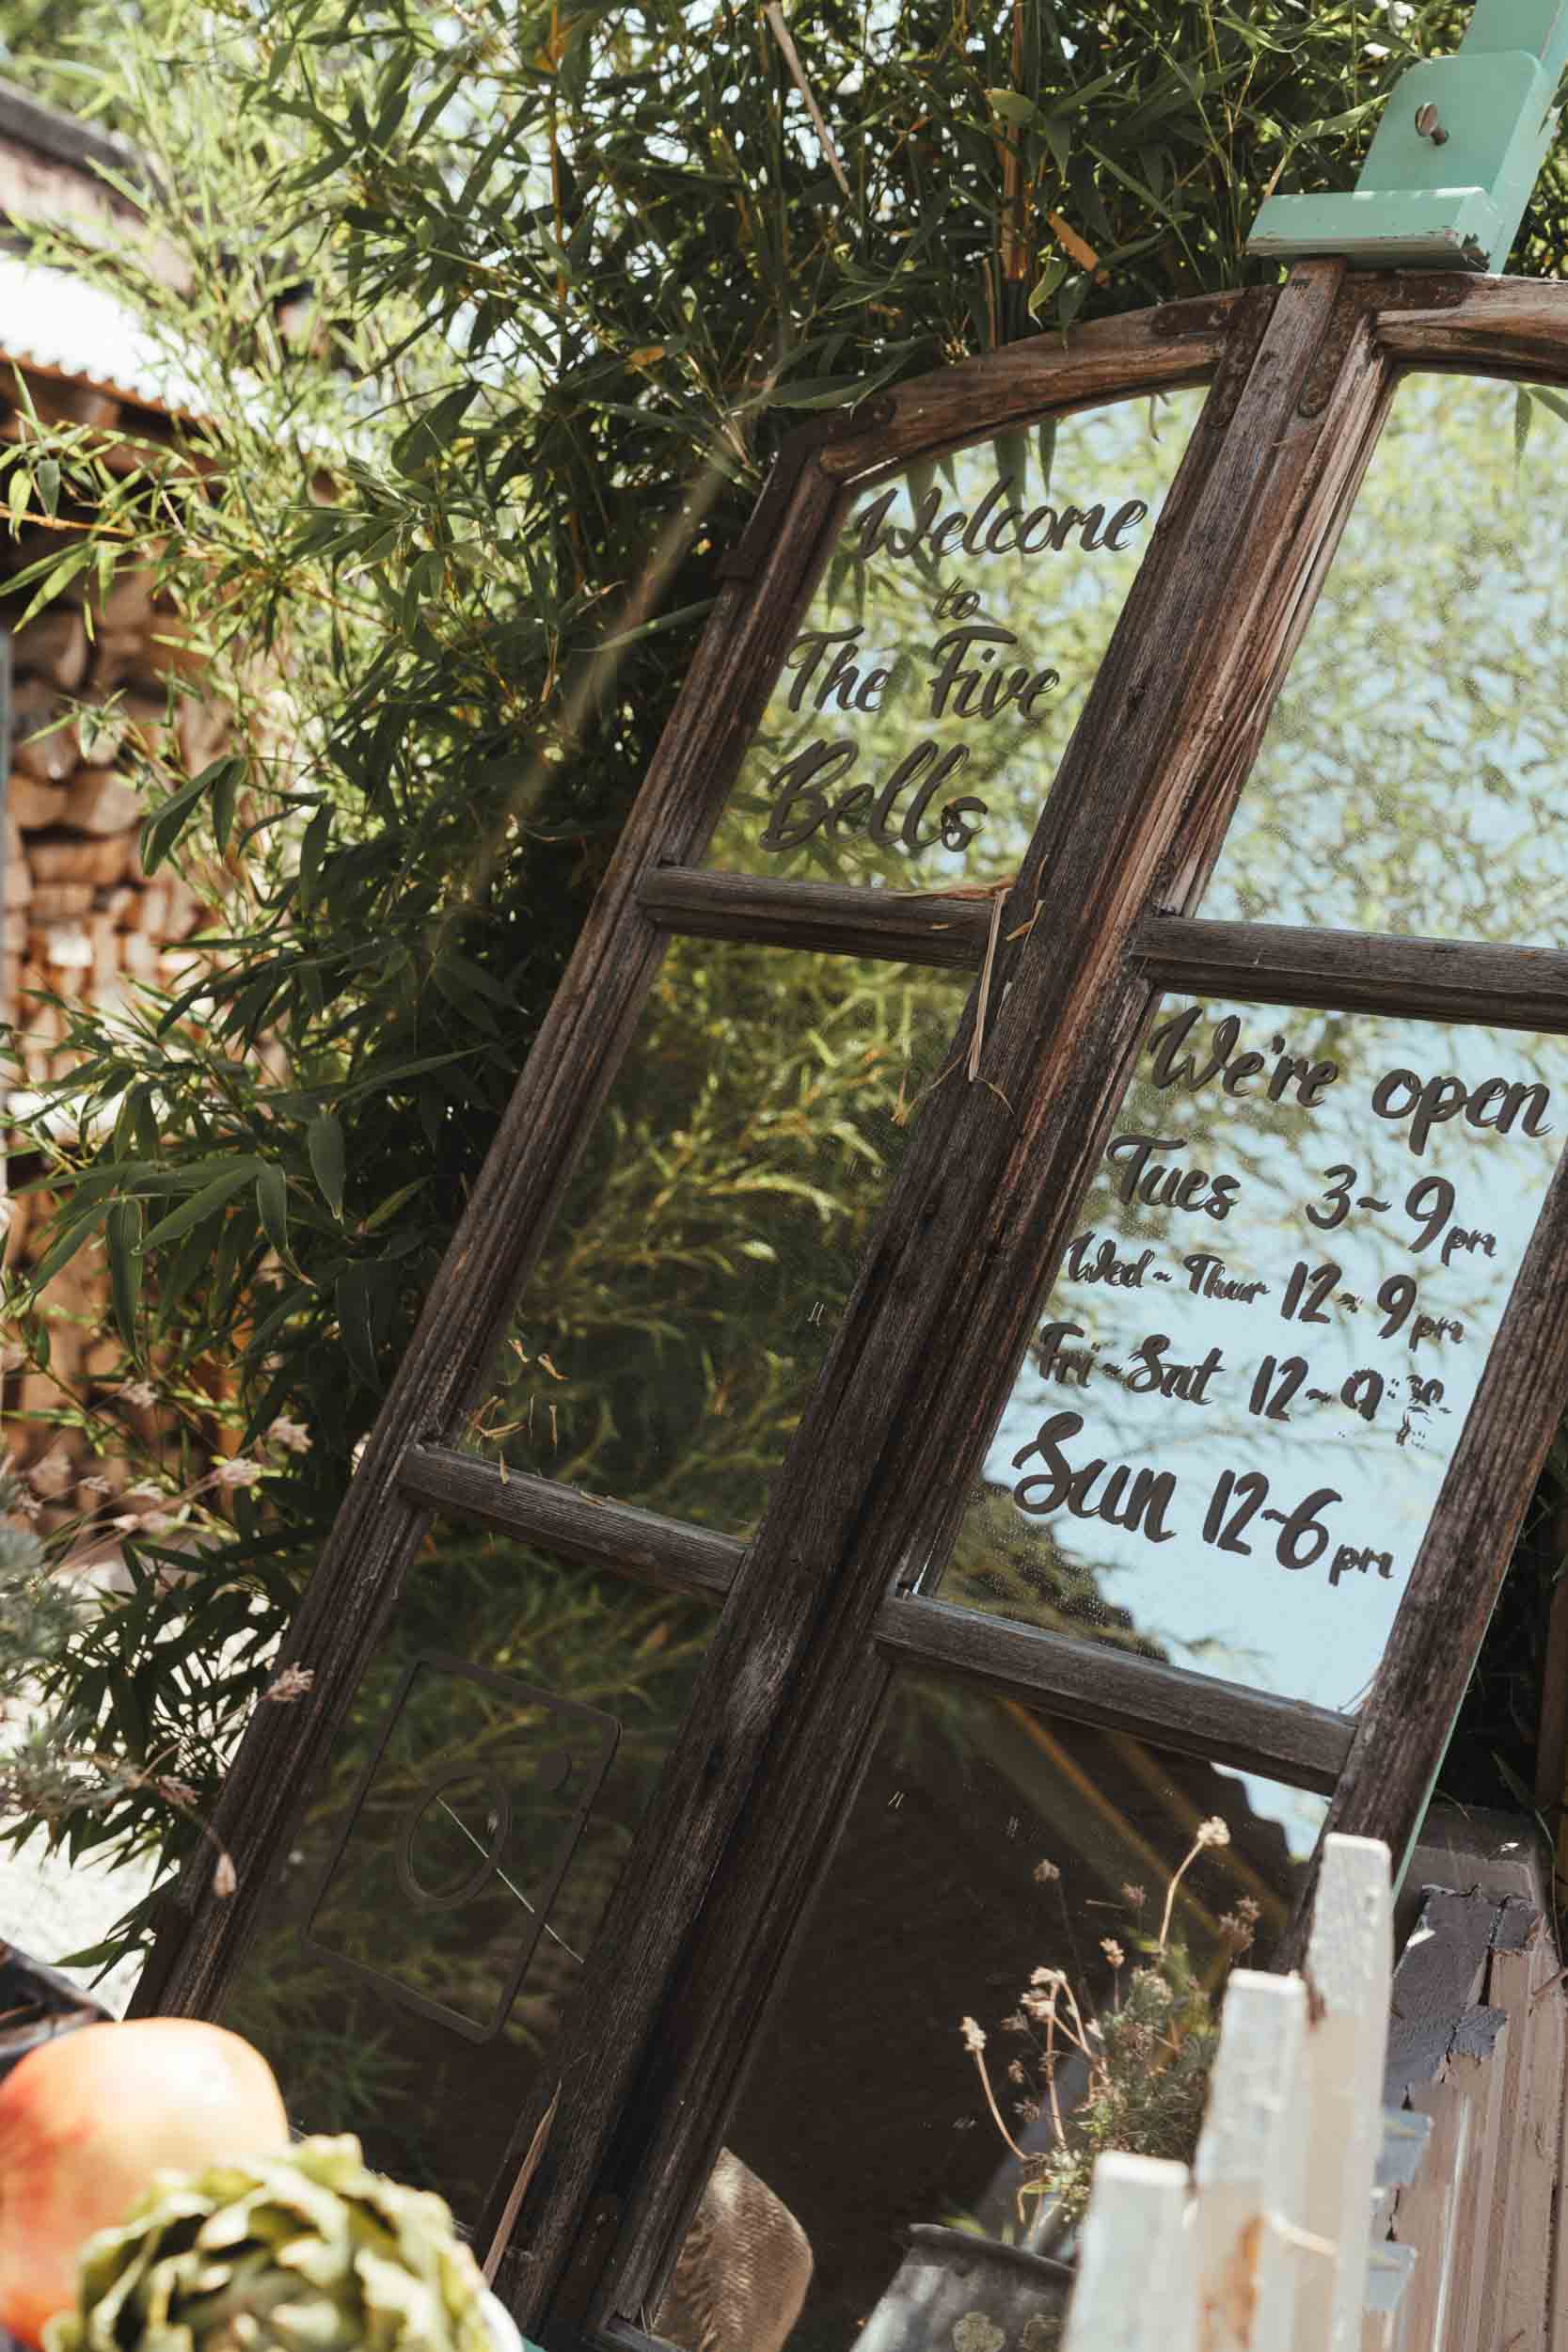 Welcome
to
The Five
Bells
We're open
Tues 3~9pm
Wed~Thur 12~9pm
Fri~Sat 12~9:30
Sun 12~6pm